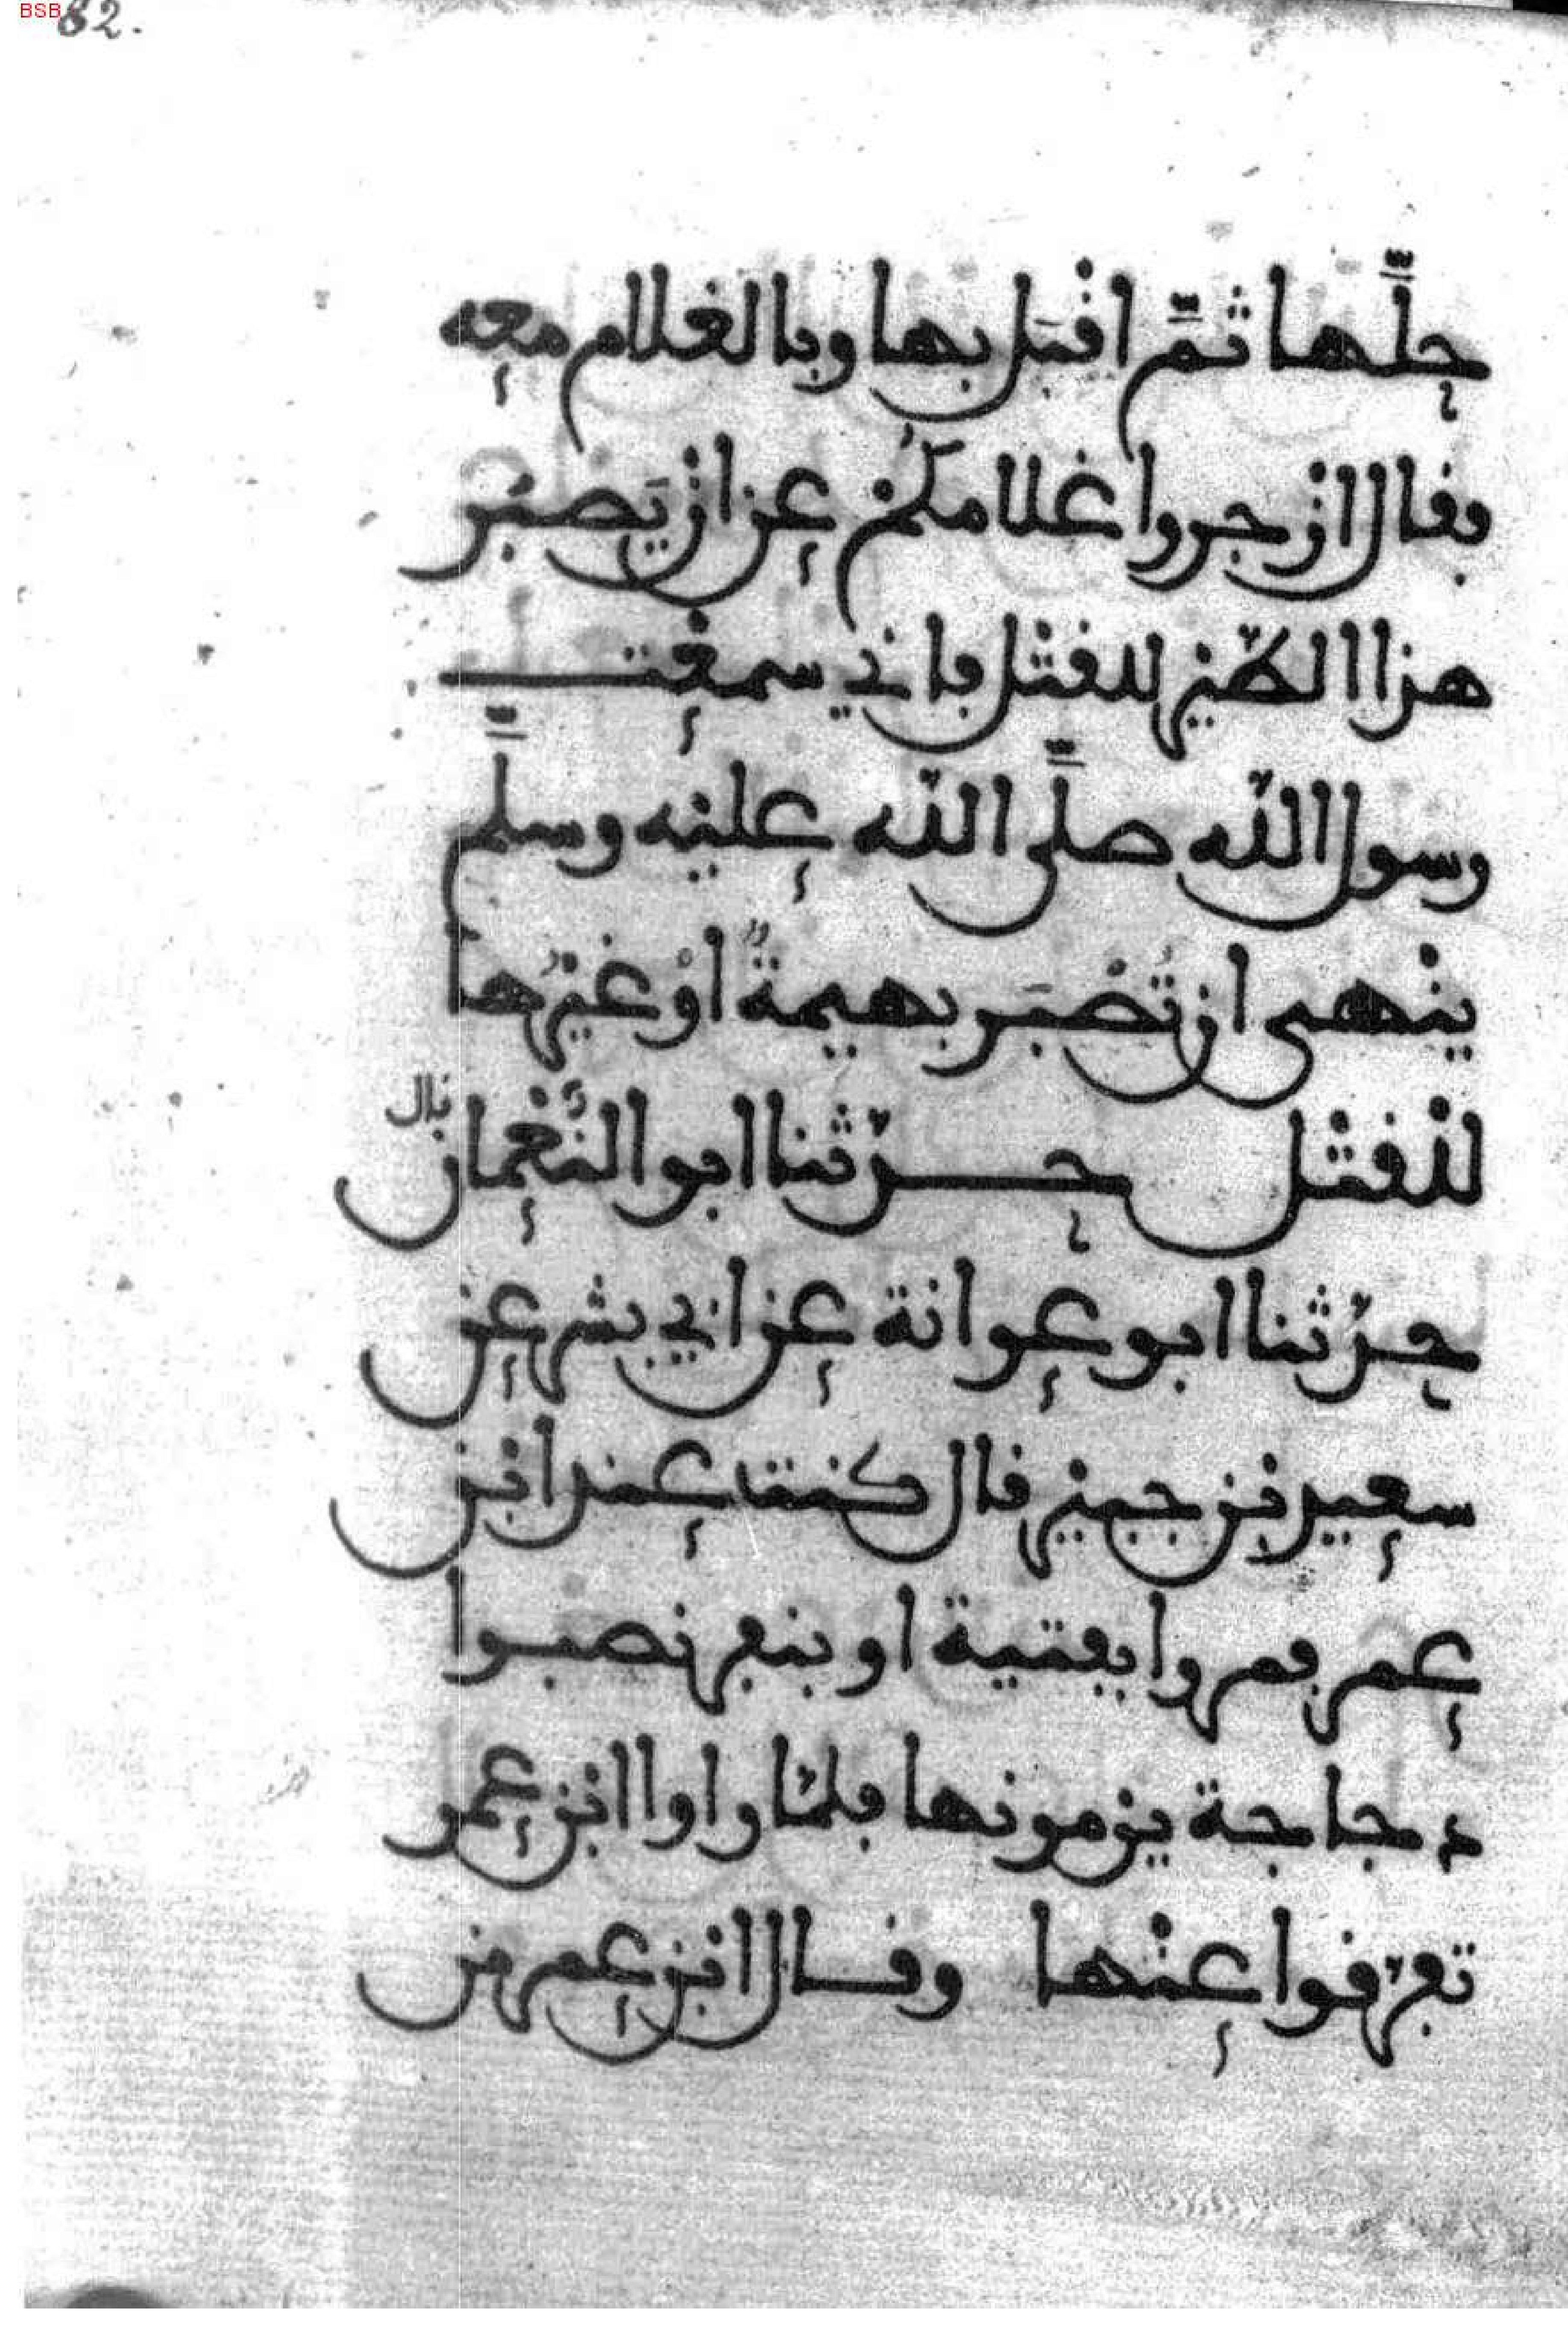 BSB 62.
حلَّها ثمَّ اقبَل بها وبالغلام معه
فقال ازجروا غلامكُم عن ان يَصبُر
هذا الطّير للقتل فإني سمعت
رسول اللّه صلَّى اللّه عليه وسلَّم
ينهى ان تُصبَر بهيمةٌ اوْ غيرُها
للقتل حدّثنا ابو النُّعمان قال
حدّثنا ابو عوانة عن ابي بشر عن
سعيد بن جبير قال كنت عند ابن
عمر فمروا بفتية او بنفر نصبوا
دجاجة يرمونها فلمّا راوا ابن عمر
تفرّقوا عنها وقال ابن عمر من